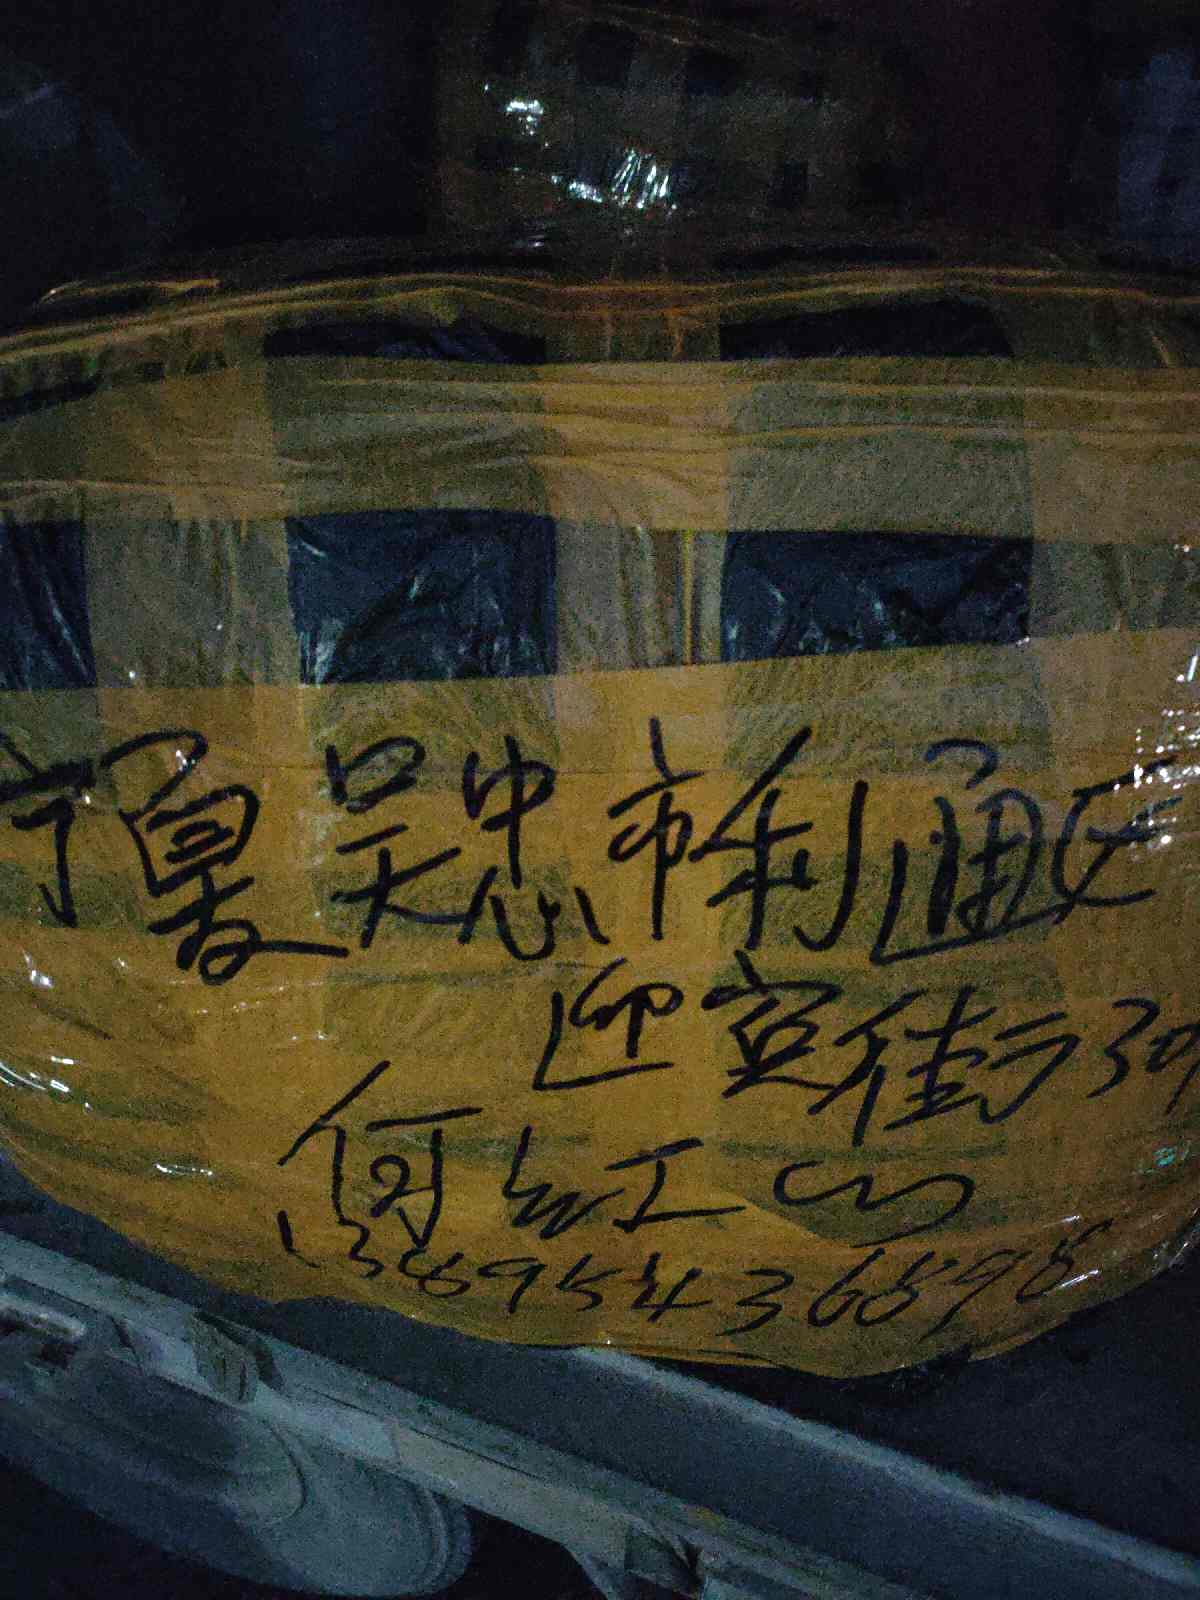 宁夏吴忠市利通区
迎宾街30
何红山
13895436898